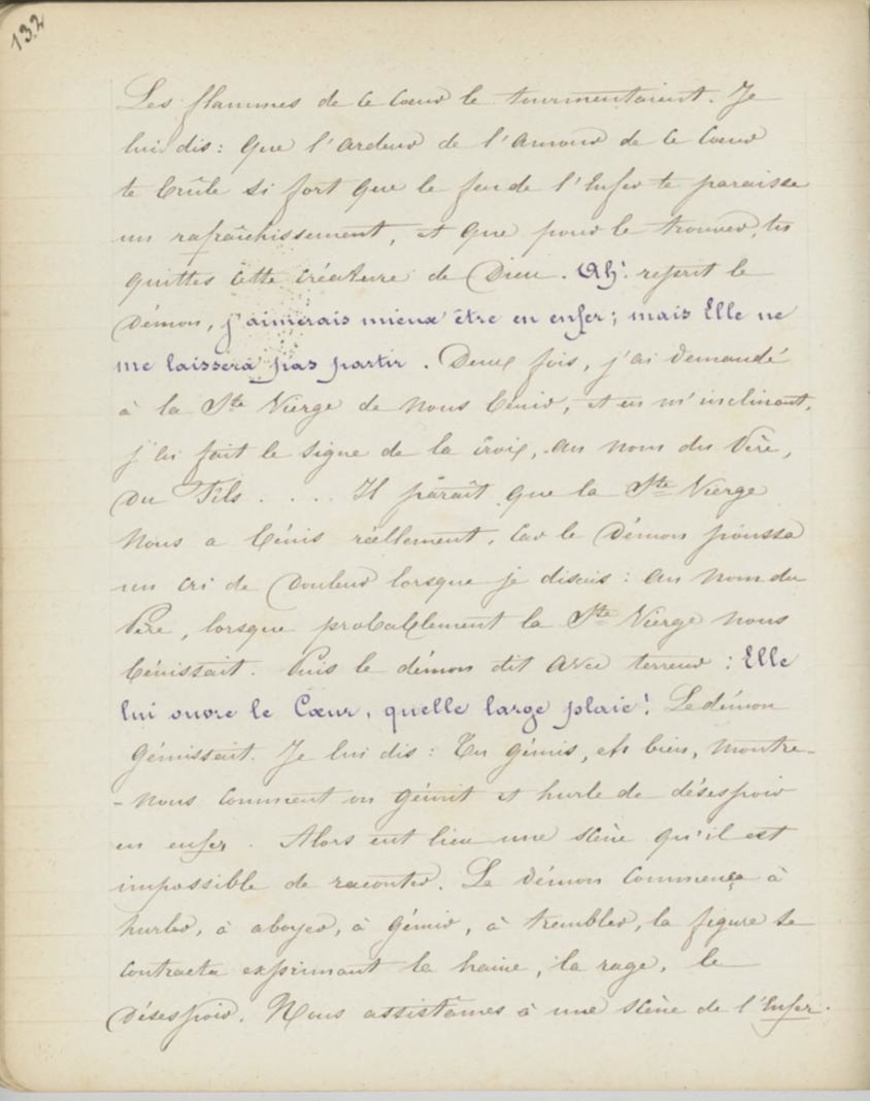 132
Les flammes de ce Cœur le tourmentaient. Je
lui dis : Que l'ardeur de l'Amour de ce Cœur
te brûle si fort que le feu de l'Enfer te paraisse
un rafraîchissement, et que pour le trouver, tu
quittes cette créature de Dieu. Ah! reprit le
Démon, j'aimerais mieux être en enfer; mais Elle ne
me laissera pas partir. Deux fois, j'ai demandé
à la Ste Vierge de nous bénir, et en m'inclinant,
j'ai fait le signe de la croix, au nom du Père,
du Fils . . . . Il paraît que la Ste Vierge
nous a bénis réellement, car le Démon poussa
un cri de Douleur lorsque je disais : au nom du
Père, lorsque probablement la Ste Vierge nous
bénissait. Puis le démon dit avec terreur : Elle
lui ouvre le Cœur, quelle large plaie! Le démon
gémissait. Je lui dis : Tu gémis, eh bien, montre-
- nous comment on gémit et hurle de désespoir
en enfer. Alors eut lieu une scène qu'il est
impossible de raconter. Le Démon commença à
hurler, à aboyer, à gémir, à trembler, la figure se
contracta exprimant la haine, la rage, le
Désespoir. Nous assistâmes à une scène de l'Enfer.